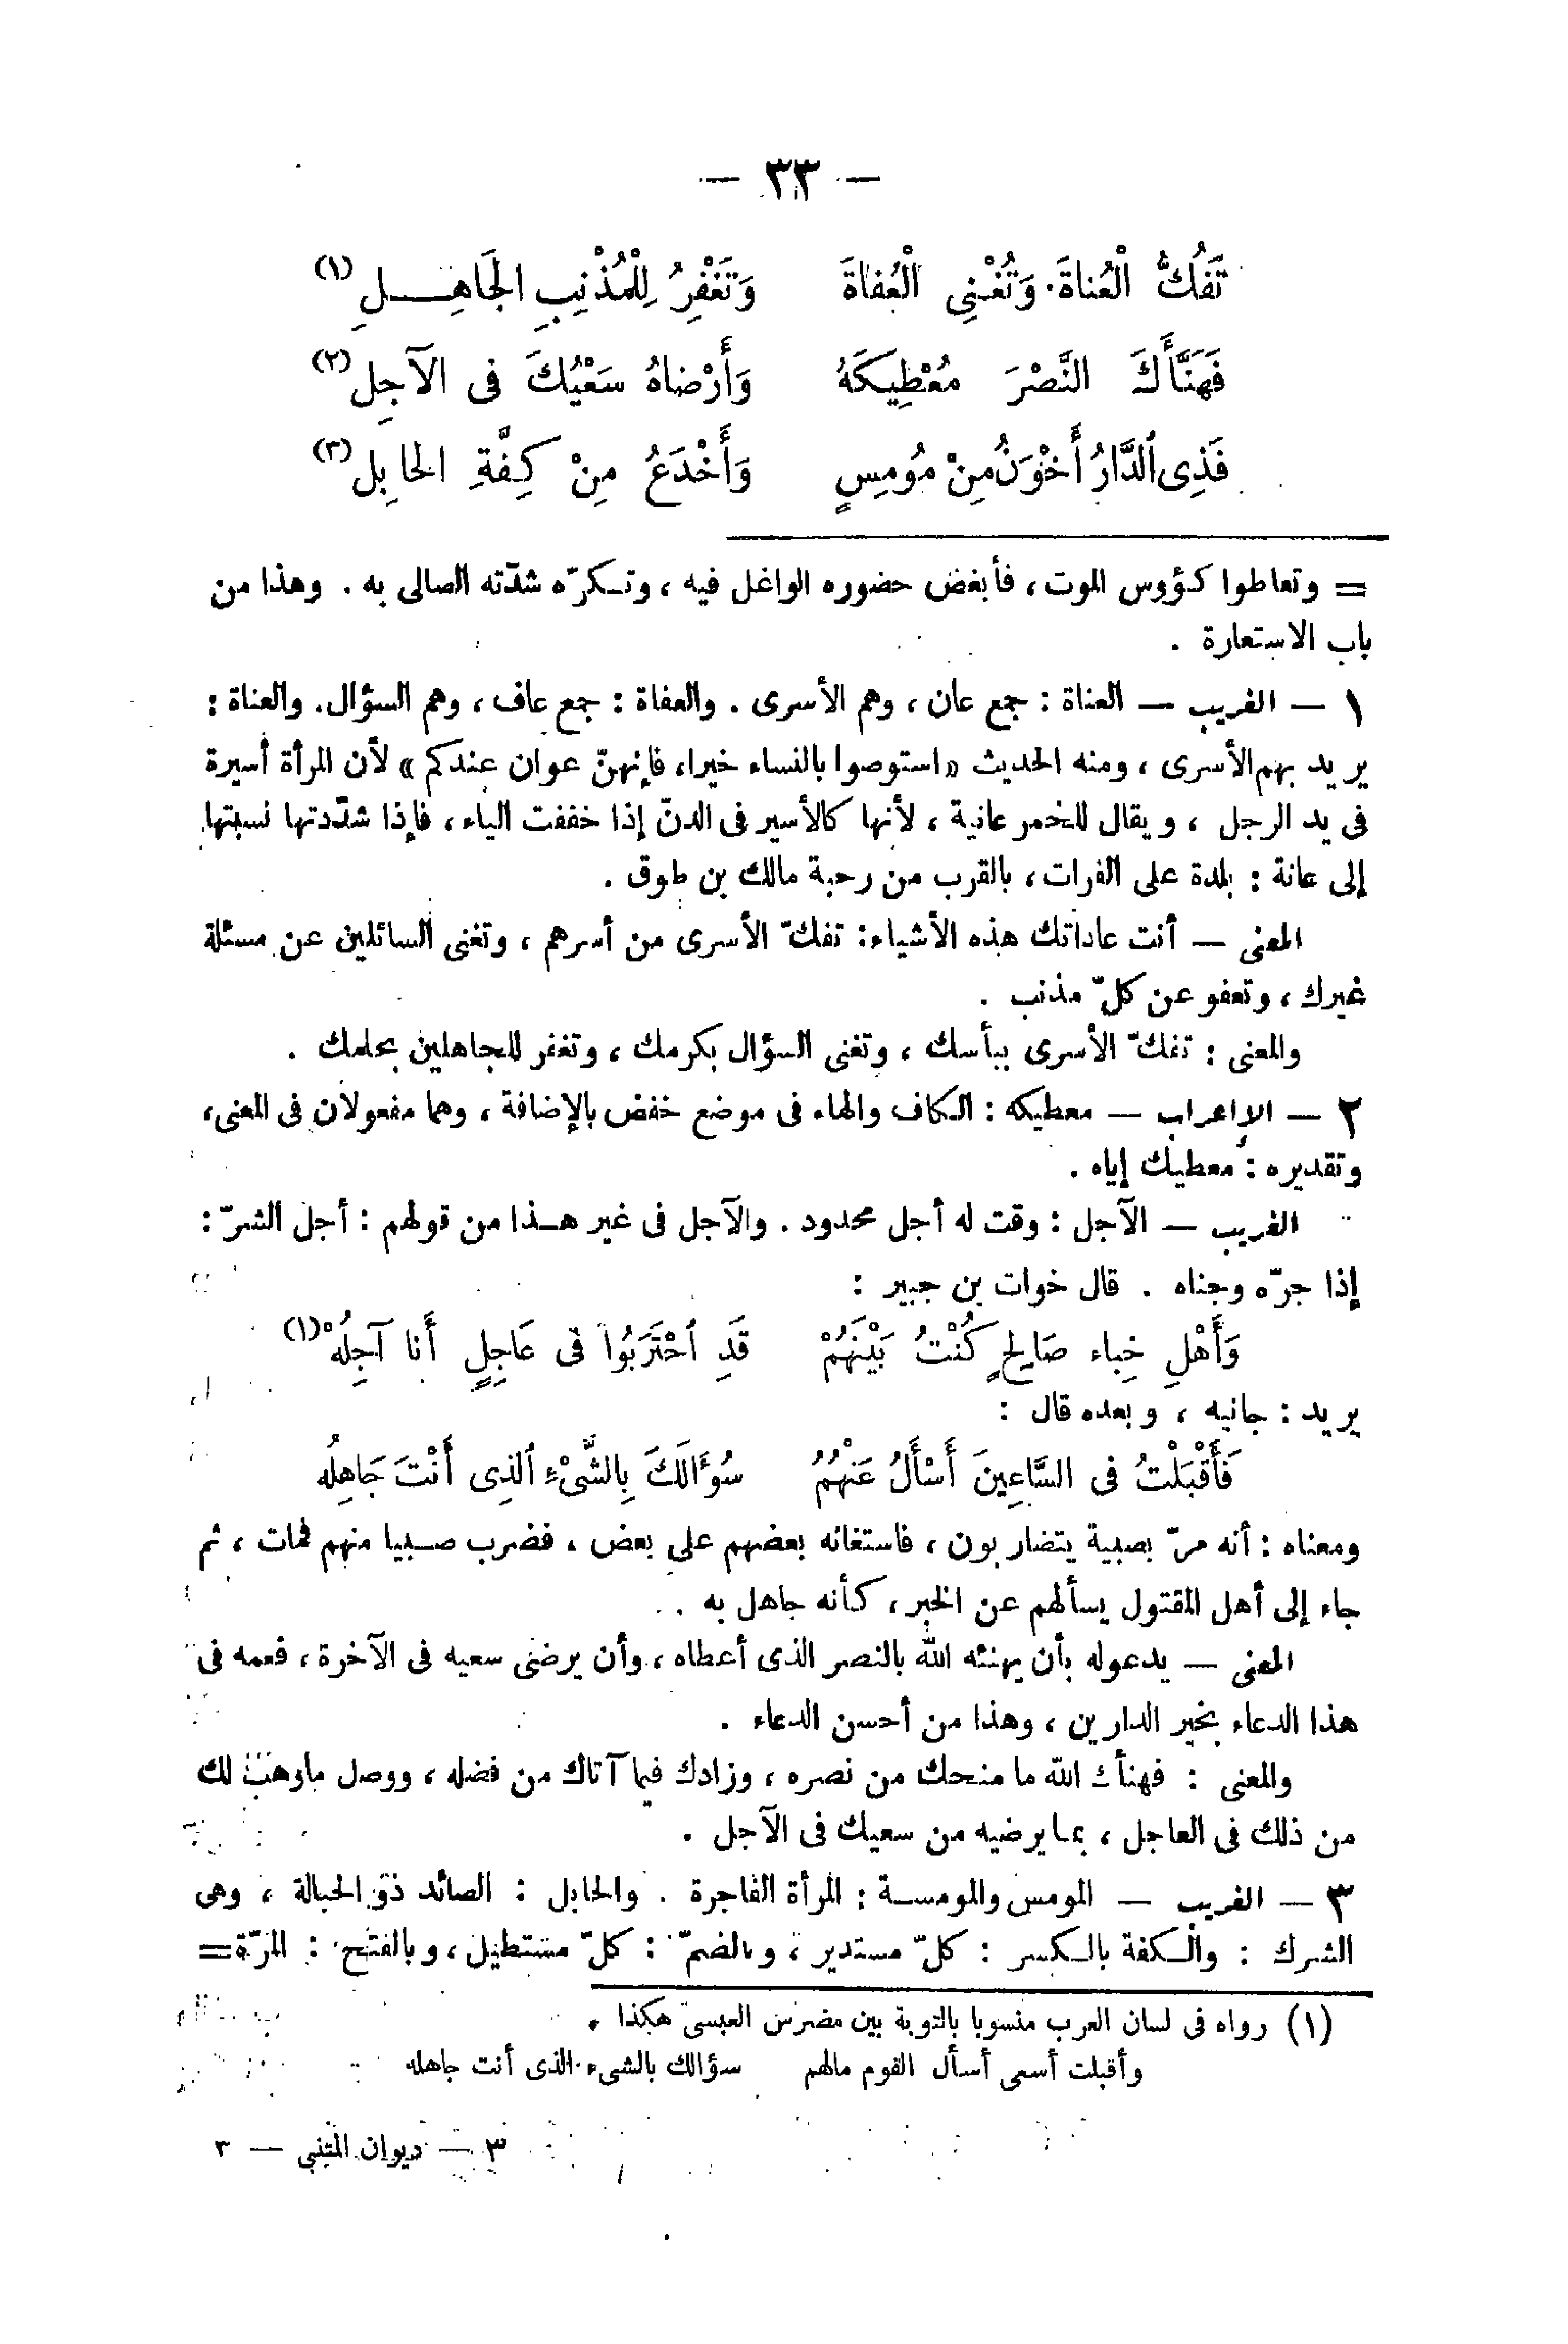 — ٣٣ —
تَفُكُّ الْعُناةَ وَتُغْنِى الْعُفاةَ وَتَغْفِرُ لِلْمُذْنِبِ الجَاهِــلِ (١)
فَهَنَّأَكَ النَّصْرَ مُعْطِيكَهُ وَأَرْضاهُ سَعْيُكَ فى الآجِلِ (٢)
فَذِى ٱلدَّارُ أَخْوَنُ مِنْ مُومِسٍ وَأَخْدَعُ مِنْ كِفَّةِ الحابِلِ (٣)
= وتعاطوا كؤوس الموت ، فأبغض حضوره الواغل فيه ، وتكرّه شدّته الصالى به . وهذا من
باب الاستعارة .
١ — الغريب — العناة : جمع عان ، وهم الأسرى . والعفاة : جمع عاف ، وهم السؤال . والعناة :
يريد بهم الأسرى ، ومنه الحديث « استوصوا بالنساء خيرا ، فإنهنّ عوان عندكم » لأن المرأة أسيرة
فى يد الرجل ، ويقال للخمر عانية ، لأنها كالأسير فى الدنّ إذا خففت الياء ، فإذا شدّدتها نسبتها
إلى عانة : بلدة على الفرات ، بالقرب من رحبة مالك بن طوق .
المعنى — أنت عاداتك هذه الأشياء : تفكّ الأسرى من أسرهم ، وتغنى السائلين عن مسئلة
غيرك ، وتعفو عن كلّ مذنب .
والمعنى : تفكّ الأسرى ببأسك ، وتغنى السؤال بكرمك ، وتغفر للجاهلين بحلمك .
٢ — الإعراب — معطيكه : الكاف والهاء فى موضع خفض بالإضافة ، وهما مفعولان فى المعنى ،
وتقديره : معطيك إياه .
الغريب — الآجل : وقت له أجل محدود . والآجل فى غير هــذا من قولهم : أجل الشرّ :
إذا جرّه وجناه . قال خوات بن جبير :
وَأَهْلِ خِباء صَالِحٍ كُنْتُ بَيْنَهُمْ قَدِ ٱحْتَرَبُوا فى عَاجِلٍ أَنا آجِلُهْ (١)
يريد : جانيه ، وبعده قال :
فَأَقْبَلْتُ فى السَّاعِينَ أَسْأَلُ عَنْهُمُ سُؤَالَكَ بِالشَّىْءِ ٱلَّذِى أَنْتَ جَاهِلُه
ومعناه : أنه مرّ بصبية يتضاربون ، فاستغاثه بعضهم على بعض ، فضرب صــبيا منهم فمات ، ثم
جاء إلى أهل المقتول يسألهم عن الخبر ، كأنه جاهل به .
المعنى — يدعوله بأن يهنئه الله بالنصر الذى أعطاه ، وأن يرضى سعيه فى الآخرة ، فعمه فى
هذا الدعاء بخير الدارين ، وهذا من أحسن الدعاء .
والمعنى : فهنأك الله ما منحك من نصره ، وزادك فيما آتاك من فضله ، ووصل ماوهب لك
من ذلك فى العاجل ، بما يرضيه من سعيك فى الآجل .
٣ — الغريب — المومس والمومســة : المرأة الفاجرة . والحابل : الصائد ذو الحبالة ، وهى
الشرك : والكفة بالكسر : كلّ مستدير ، وبالضمّ : كلّ مستطيل ، وبالفتح : المرّة =
(١) رواه فى لسان العرب منسوبا بالتوبة بين مضرس العبسى هكذا .
وأقبلت أسعى أسأل القوم مالهم سؤالك بالشىء الذى أنت جاهله
٣ — ديوان المتنبى — ٣